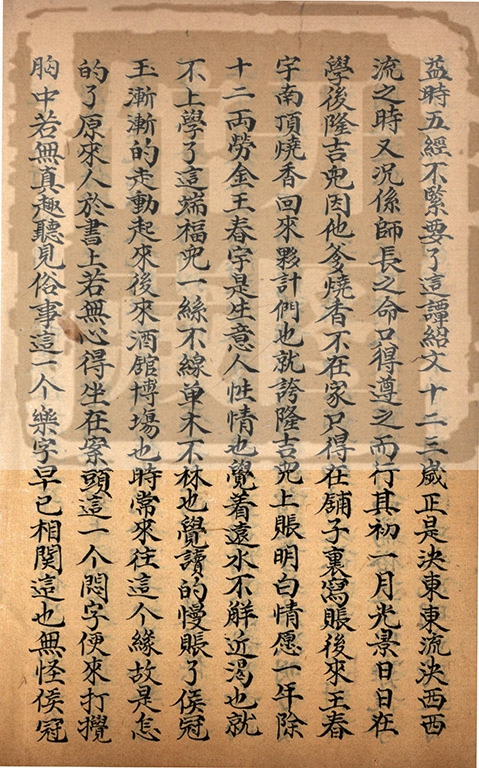 益時五經不緊要了這譚紹文十二三歲正是決東東流決西西
流之時又況係師長之命只得遵之而行其初一月光景日日在
學後隆吉兒因他爹燒香不在家只得在舖子裏寫賬後來王春
宇南頂燒香回來夥計們也就誇隆吉兒上賬明白情愿一年除
十二兩勞金王春宇是生意人性情也覺着遠水不觧近渴也就
不上學了這端福兒一絲不線单木不林也覺讀的慢賬了侯冠
玉漸漸的走動起來後來酒館博塲也時常來往這个緣故是怎
的了原來人於書上若無心得坐在案頭這一个悶字便來打攪
胸中若無真趣聽見俗事這一个樂字早已相関這也無怪侯冠